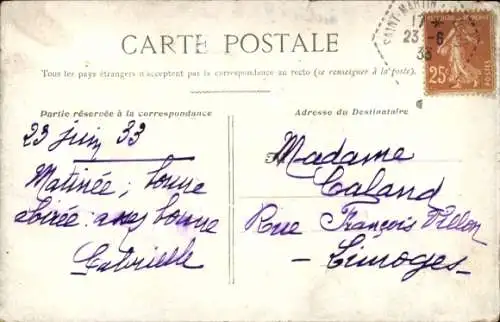 CARTE POSTALE
Tous les pays étrangers n'acceptent pas la correspondance au recto (se renseigner à la poste).
Partie réservée à la correspondance
23 juin 33
Matinée; bonne
soirée: assez bonne
Gabrielle
Adresse du Destinataire
Madame
Caland
Rue François Villon
- Limoges -
SAINT-MARTIN
17 *
23 -6
33
25c
POSTES